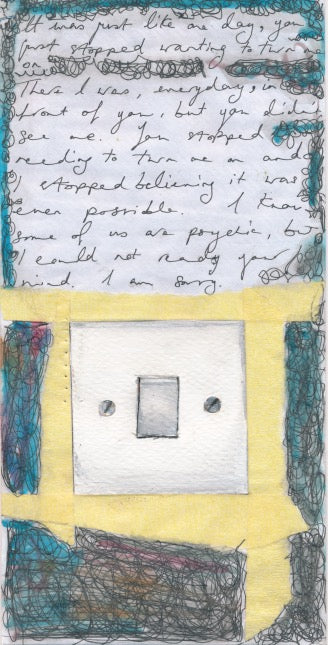 It was just like one day, you
just stopped wanting to turn
on
There I was, everyday, in
front of you, but you didn't
see me. You stopped
needing to turn me on and
I stopped believing it was
even possible. I know
some of us are psychic, but
I could not read your
mind. I am sorry.